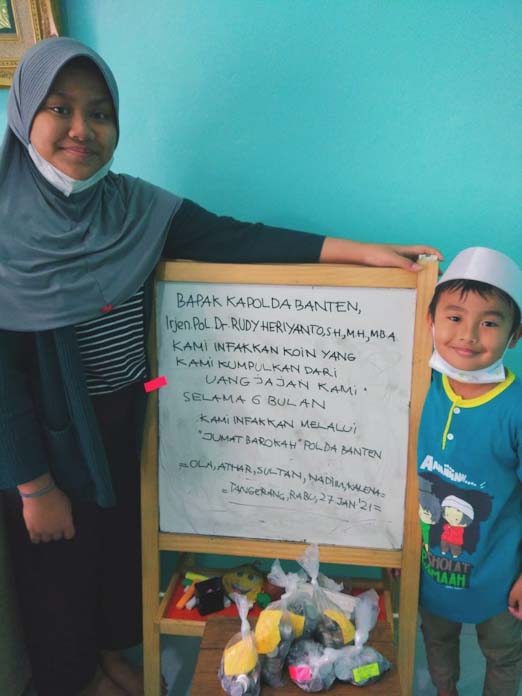 BAPAK KAPOLDA BANTEN,
Irjen.Pol. Dr. RUDY HERIYANTO, SH, M.H, MBA
KAMI INFAKKAN KOIN YANG
KAMI KUMPULKAN DARI
UANG JAJAN KAMI
SELAMA 6 BULAN
KAMI INFAKKAN MELALUI
"JUMAT BAROKAH" POLDA BANTEN
=OLA, ATHAR, SULTAN, NADIM, KALENA=
=TANGERANG, RABU, 27 JAN '21=
SHOLAT
JAMAAH